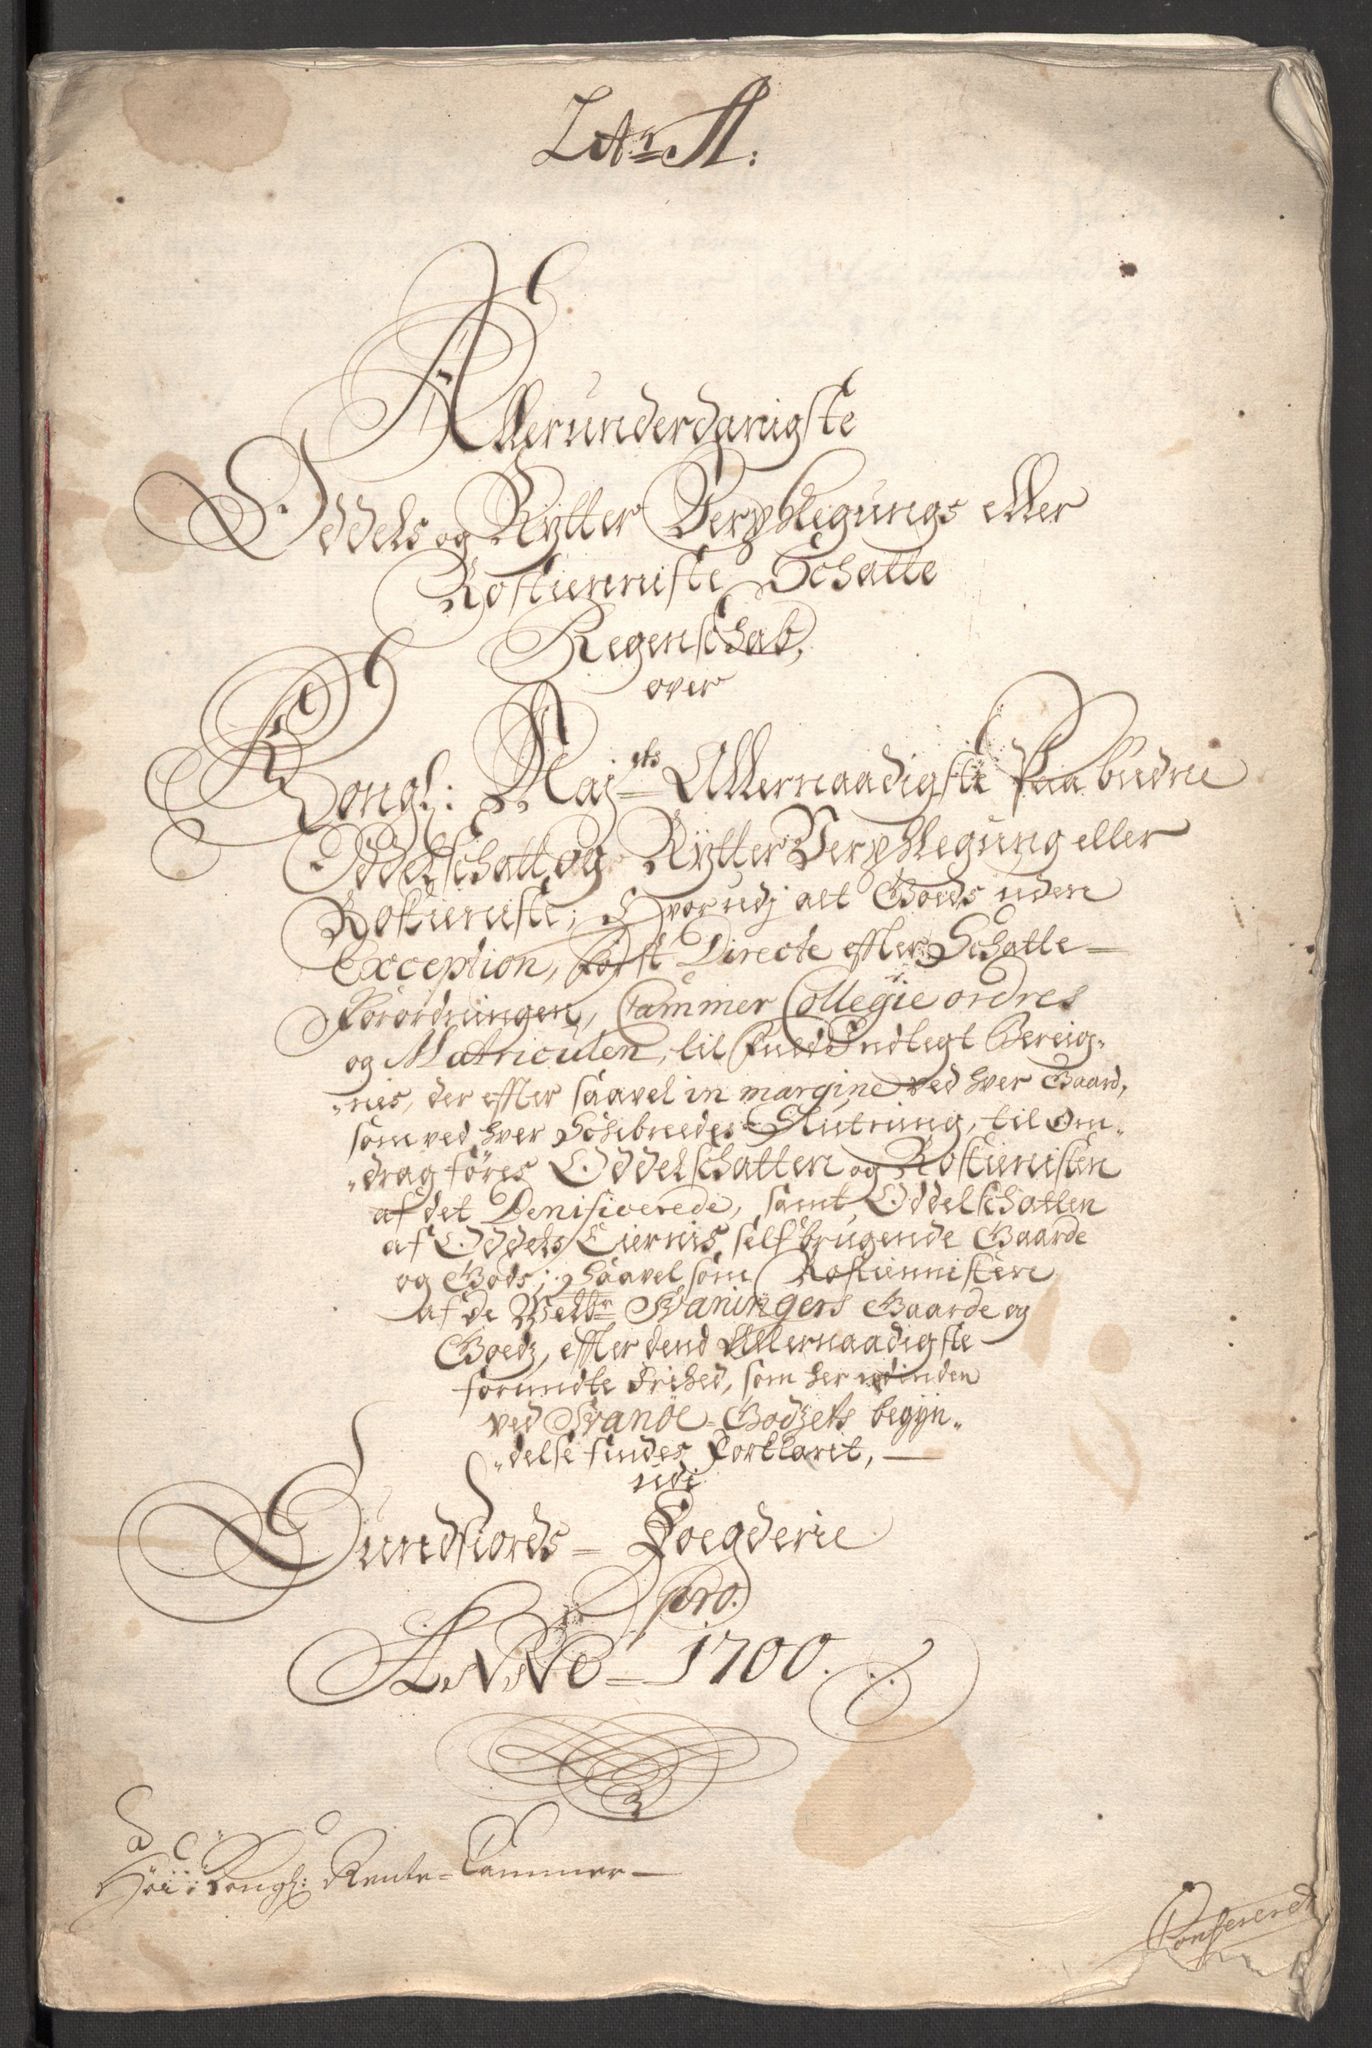 Litr A:
Allerunderdanigste
Oddels og Rytter Verphlegungs eller
Rostiennste Schatte
Regenschab,
over
Kongl: Maj:ts Allernaadigste Paabudne
Oddelschatt og Rytter Verphlegung eller
Rostieniste, Hvorudj alt Goeds uden
Exception, først Directe effter Schatte-
Forordningen, Cammer Collegie ordres
og Matriculen, til fuld Endtlegt Bereig-
nes, der effter saavel in margine ved hver Gaard,
som ved hver Schibreedes Slutning, til Om-
drag føres Oddelschatten og Rostienisten
af det Benificerede, samt Oddelschatten
af Oddels Eiernis self brugende Gaarde
og Gods; Saavel som Rostiennisten
af de Welbr Svaningers Gaarde og
Goedz, effter dend Allernaadigste
forundte Frihed, som her udinden
ved Svanøe-Godzets begyn-
delse findes Forklarit,
udi
Sundfiords = Foegderie
pro.
ANNO = 1700.
Høi Kongl: Rente-Cammer
Confereret